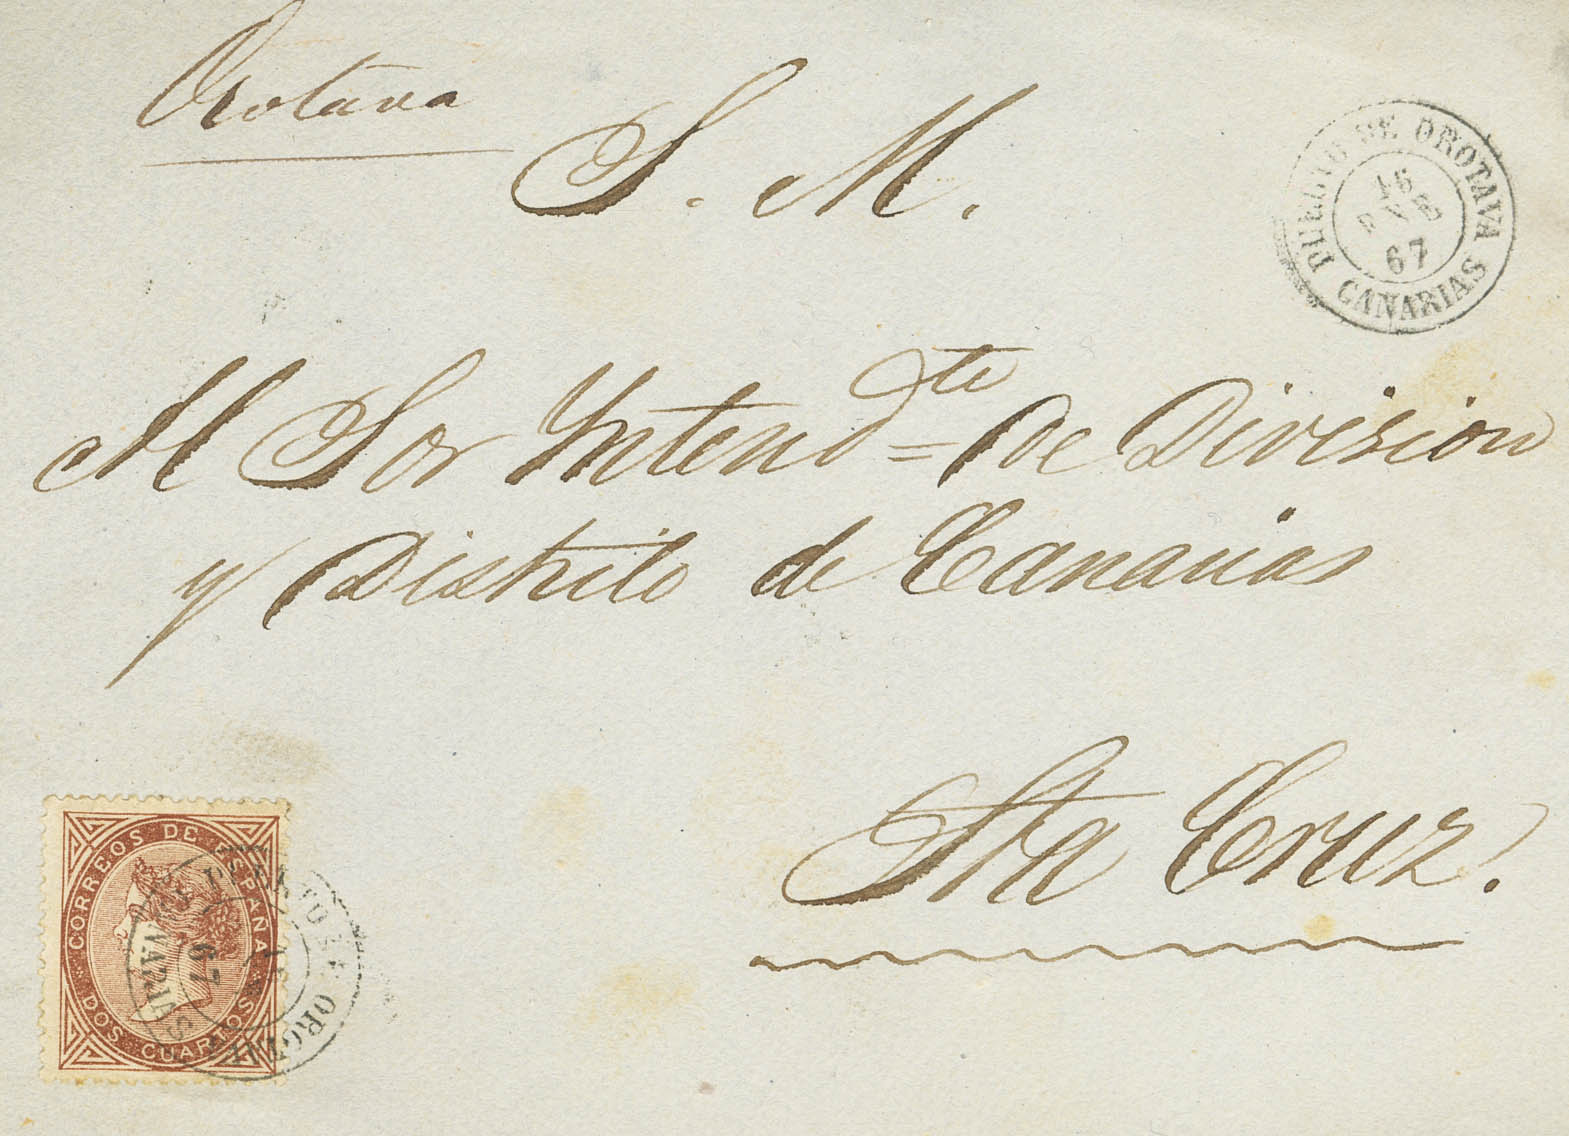 Orotava
S. M.
PUERTO DE OROTAVA
16
ENE
67
CANARIAS
Al Sor Intend.te De Division
y Distrito de Canarias
Sta Cruz.
CORREOS DE ESPAÑA
DOS CUARTOS
67